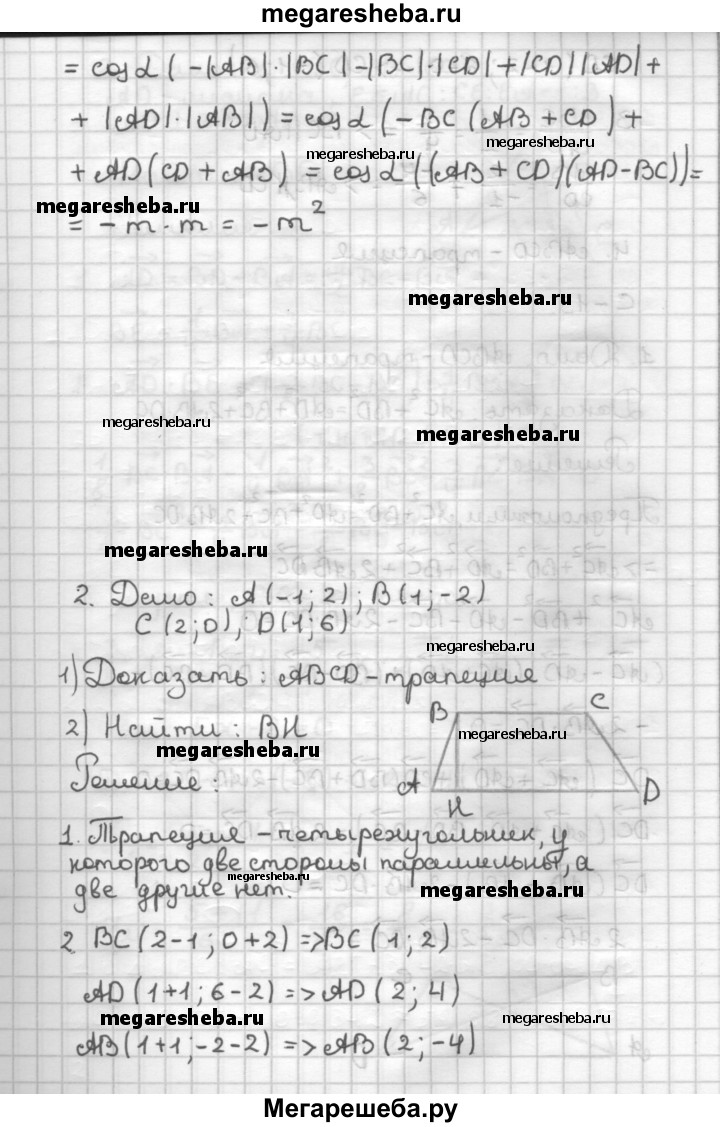 megaresheba.ru
= cos α (-|AB|·|BC|-|BC|·|CD|+|CD||AD|+
+ |AD|·|AB|) = cos α (-BC (AB + CD) +
megaresheba.ru
megaresheba.ru
+ AD(CD + AB) = cos α ((AB + CD)(AD-BC))=
megaresheba.ru
= -m·m = -m²
megaresheba.ru
megaresheba.ru
megaresheba.ru
megaresheba.ru
2. Дано: A(-1; 2); B(1; -2)
C (2; 0), D(1; 6)
megaresheba.ru
1) Доказать: ABCD-трапеция
2) Найти: BH
B C
megaresheba.ru
megaresheba.ru
Решение:
A D
H
1. Трапеция - четырехугольник, у
которого две стороны параллельны, а
megaresheba.ru
две другие нет.
megaresheba.ru
2 BC(2-1; 0+2) => BC(1; 2)
AD(1+1; 6-2) => AD(2; 4)
megaresheba.ru
megaresheba.ru
AB(1+1; -2-2) => AB(2; -4)
Мегарешеба.ру